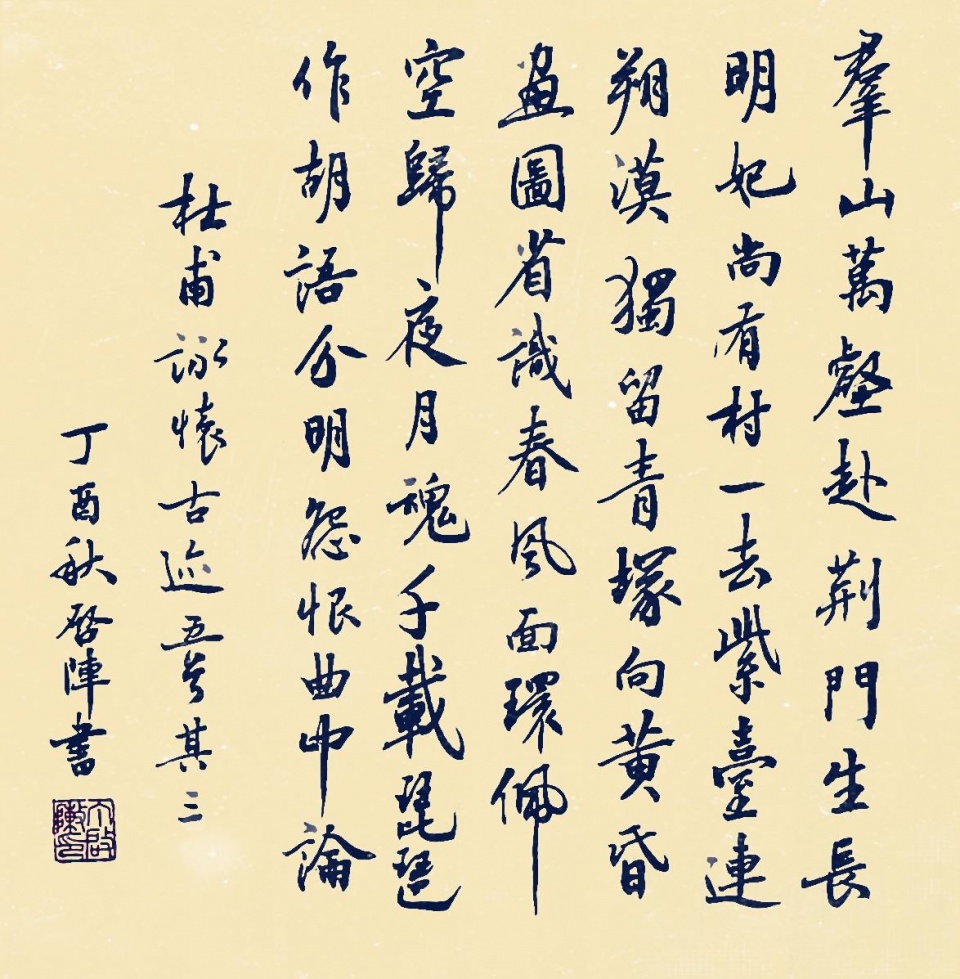 羣山萬壑赴荆門生長
明妃尚有村一去紫臺連
朔漠獨留青塚向黃昏
畫圖省識春風面環佩
空歸夜月魂千載琵琶
作胡語分明怨恨曲中論
杜甫詠懷古迹五首其三
丁酉秋啓陣書